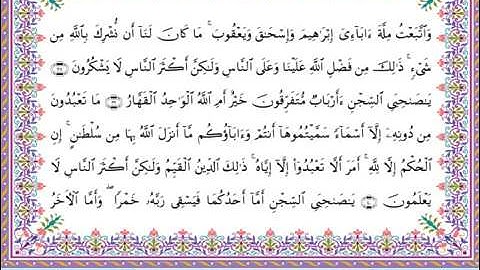 وَٱتَّبَعْتُ مِلَّةَ ءَابَآءِىٓ إِبْرَٰهِيمَ وَإِسْحَٰقَ وَيَعْقُوبَ ۚ مَا كَانَ لَنَآ أَن نُّشْرِكَ بِٱللَّهِ مِن
شَىْءٍ ۚ ذَٰلِكَ مِن فَضْلِ ٱللَّهِ عَلَيْنَا وَعَلَى ٱلنَّاسِ وَلَٰكِنَّ أَكْثَرَ ٱلنَّاسِ لَا يَشْكُرُونَ ٣٨
يَٰصَٰحِبَىِ ٱلسِّجْنِ ءَأَرْبَابٌ مُّتَفَرِّقُونَ خَيْرٌ أَمِ ٱللَّهُ ٱلْوَٰحِدُ ٱلْقَهَّارُ ٣٩ مَا تَعْبُدُونَ
مِن دُونِهِۦٓ إِلَّآ أَسْمَآءً سَمَّيْتُمُوهَآ أَنتُمْ وَءَابَآؤُكُم مَّآ أَنزَلَ ٱللَّهُ بِهَا مِن سُلْطَٰنٍ ۚ إِنِ
ٱلْحُكْمُ إِلَّا لِلَّهِ ۚ أَمَرَ أَلَّا تَعْبُدُوٓا۟ إِلَّآ إِيَّاهُ ۚ ذَٰلِكَ ٱلدِّينُ ٱلْقَيِّمُ وَلَٰكِنَّ أَكْثَرَ ٱلنَّاسِ لَا
يَعْلَمُونَ ٤٠ يَٰصَٰحِبَىِ ٱلسِّجْنِ أَمَّآ أَحَدُكُمَا فَيَسْقِى رَبَّهُۥ خَمْرًا ۖ وَأَمَّا ٱلْءَاخَرُ